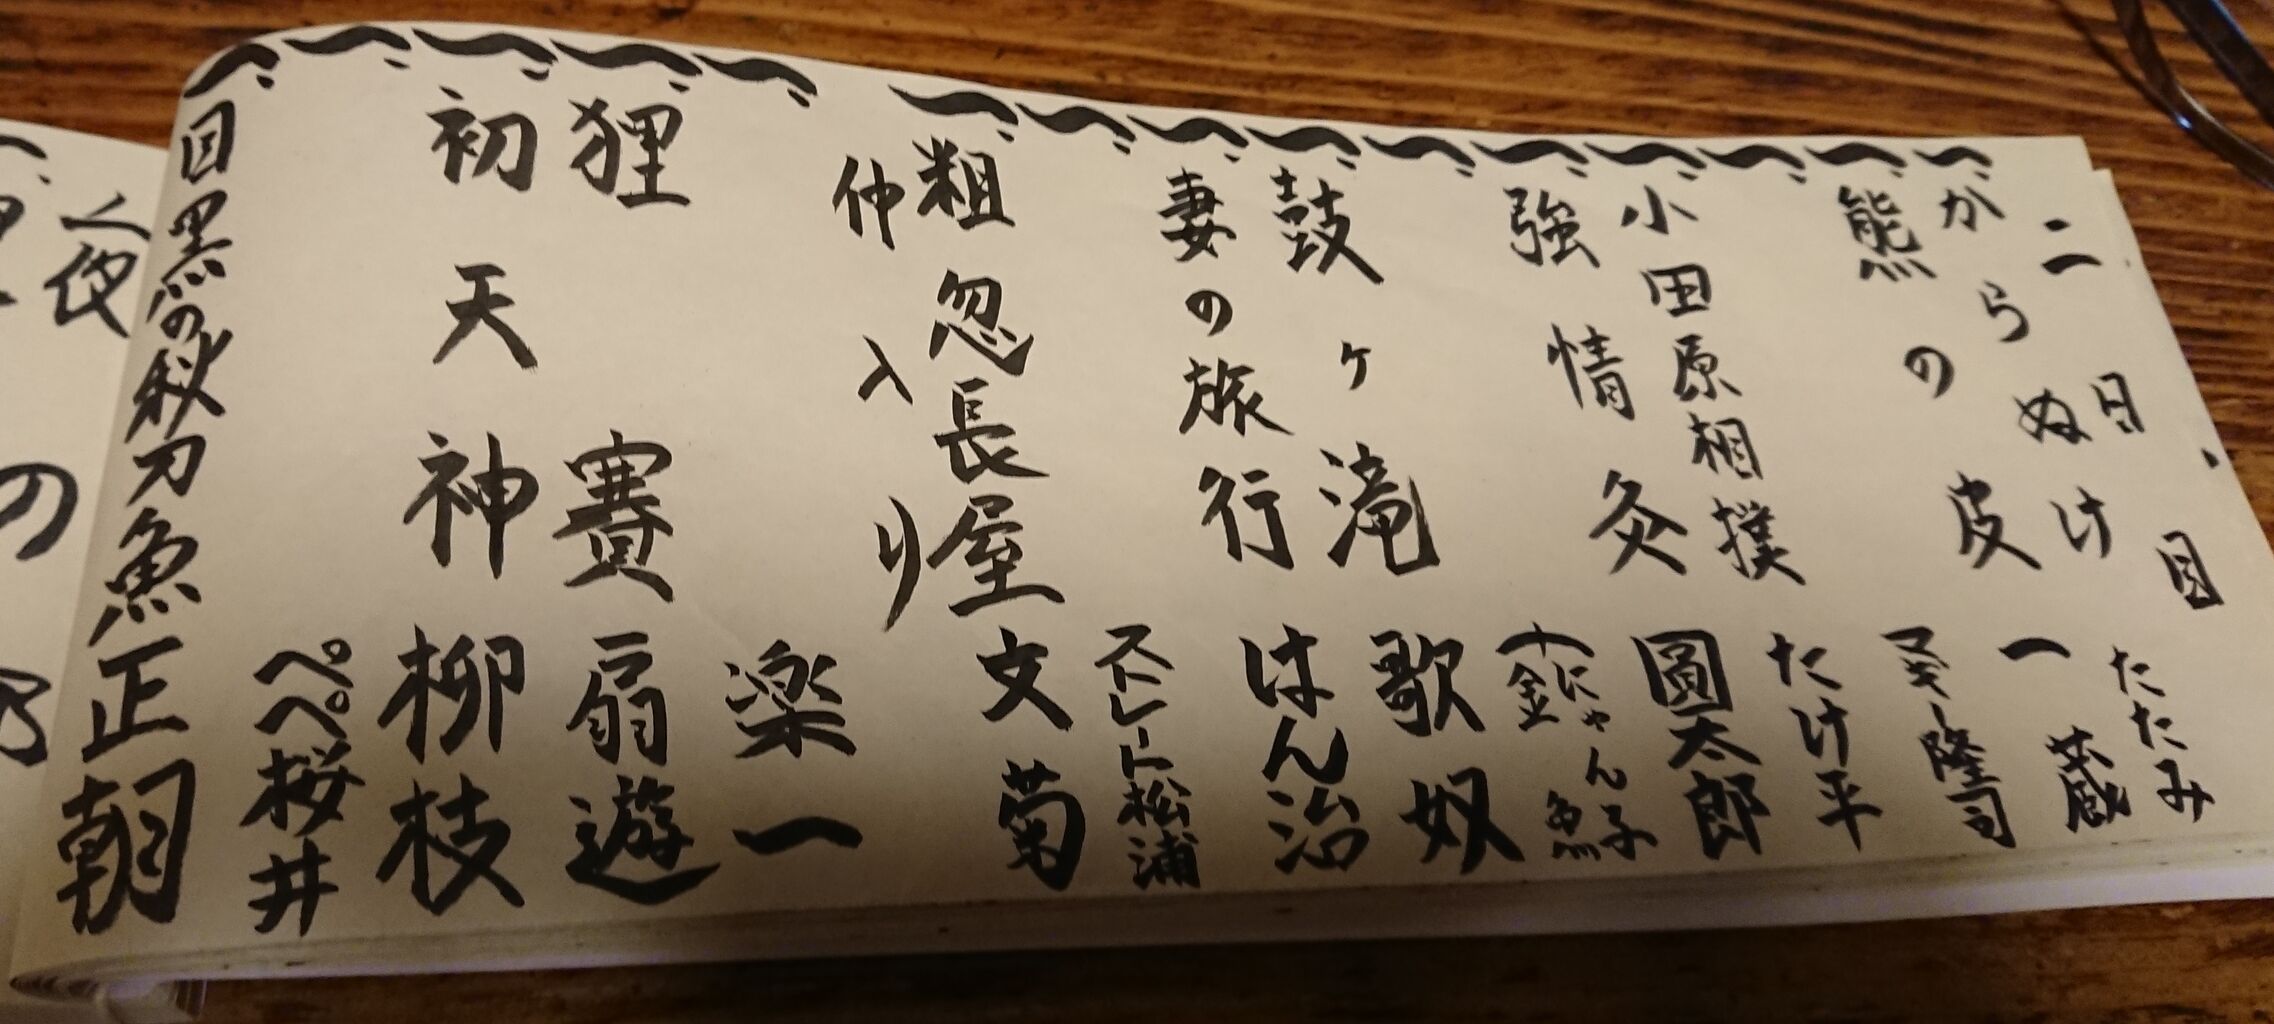 二日目
一、からぬけ たたみ
一、熊の皮 一蔵
一、 マギー隆司
一、小田原相撲 たけ平
一、強情灸 圓太郎
一、 にゃん子金魚
一、鼓ヶ滝 歌奴
一、妻の旅行 はん治
一、 ストレート松浦
一、粗忽長屋 文菊
仲入り
一、 楽一
一、狸賽 扇遊
一、初天神 柳枝
一、 ペペ桜井
一、目黒の秋刀魚 正朝